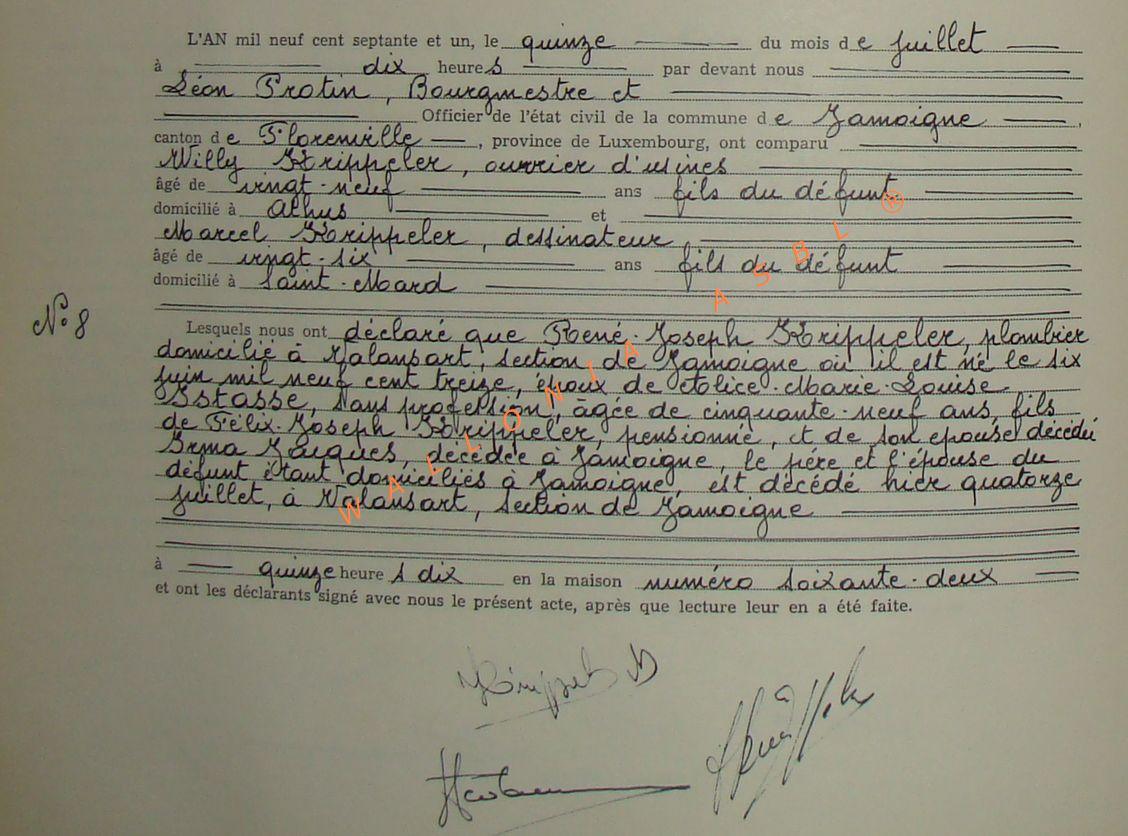 L'AN mil neuf cent septante et un, le quinze du mois de juillet
à dix heures par devant nous
Léon Protin, Bourgmestre et
Officier de l'état civil de la commune de Jamoigne,
canton de Florenville, province de Luxembourg, ont comparu
Willy Krippeler, ouvrier d'usines
âgé de vingt-neuf ans fils du défunt
domicilié à Athus et
Marcel Krippeler, dessinateur
âgé de vingt-six ans fils du défunt
domicilié à Saint-Mard
N° 8
Lesquels nous ont déclaré que René-Joseph Krippeler, plombier
domicilié à Valansart, section de Jamoigne où il est né le six
juin mil neuf cent treize, époux de Alice-Marie-Louise
Istasse, sans profession, âgée de cinquante-neuf ans, fils
de Félix-Joseph Krippeler, pensionné, et de son epouse décédée
Irma Jacques, décédée à Jamoigne, le père et l'épouse du
défunt étant domiciliés à Jamoigne, est décédé hier quatorze
juillet, à Valansart, section de Jamoigne
à quinze heures dix en la maison numéro soixante-deux
et ont les déclarants signé avec nous le présent acte, après que lecture leur en a été faite.
WALLONIA ASBL ®